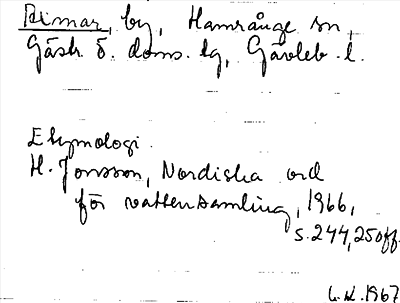 Rimar, by, Hamrånge sn,
Gästr. ö. doms. lg, Gävleb. l.
Etymologi
H. Jonsson, Nordiska ord
för vattensamling, 1966,
s. 244, 250ff.
1967